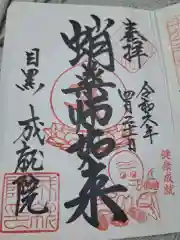 奉拝
令和六年
四月二十一日
蛸薬師如来
目黒
成就院
健康成就